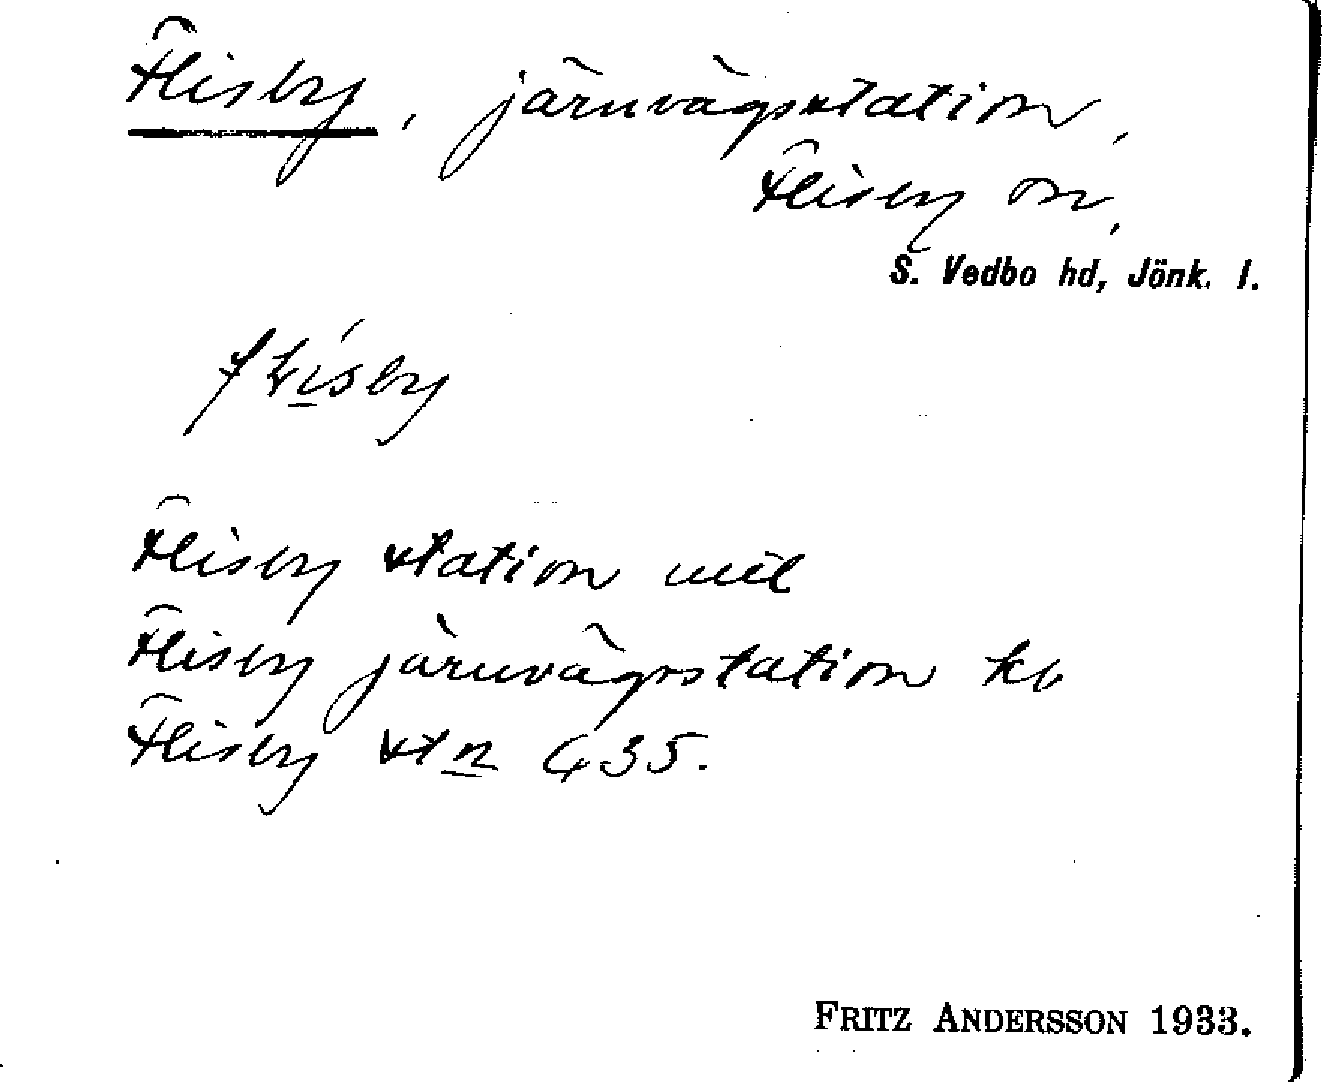 Flisby, järnvägsstation,
Flisby sn,
S. Vedbo hd, Jönk. l.
flisby
Flisby station uel
Flisby järnvägsstation kb
Flisby stn 435.
FRITZ ANDERSSON 1933.